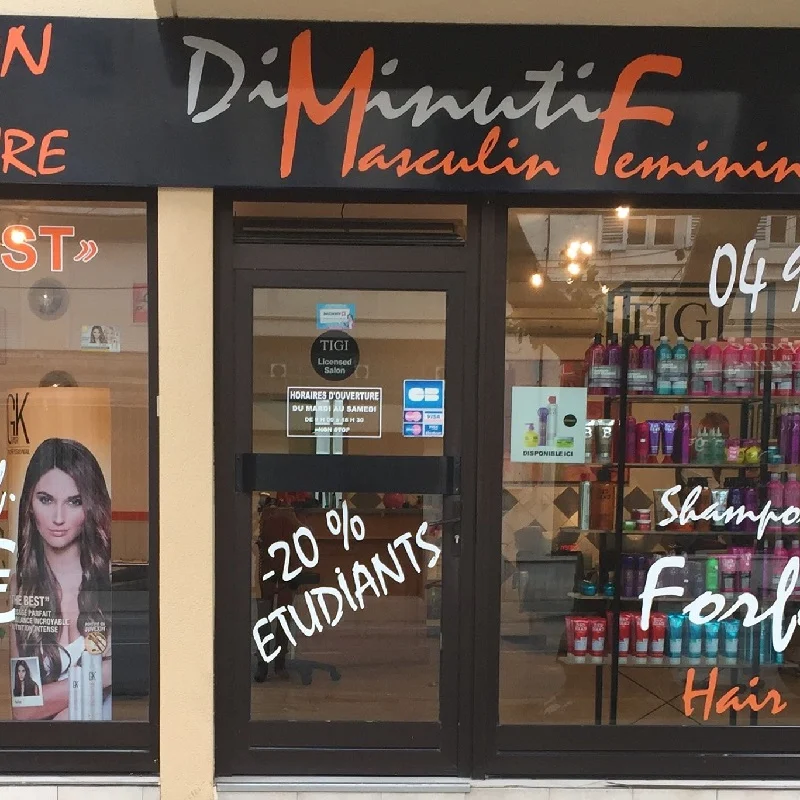 DiMinutiF
Masculin Feminin
ON
RE
ST»
04 9
TIGI
TIGI
Licensed
Salon
HORAIRES D'OUVERTURE
DU MARDI AU SAMEDI
NON STOP
CB
VISA
DISPONIBLE ICI
GK
-20 %
ETUDIANTS
Shampo
Forf
Hair
THE BEST"
INCROYABLE
INTENSE